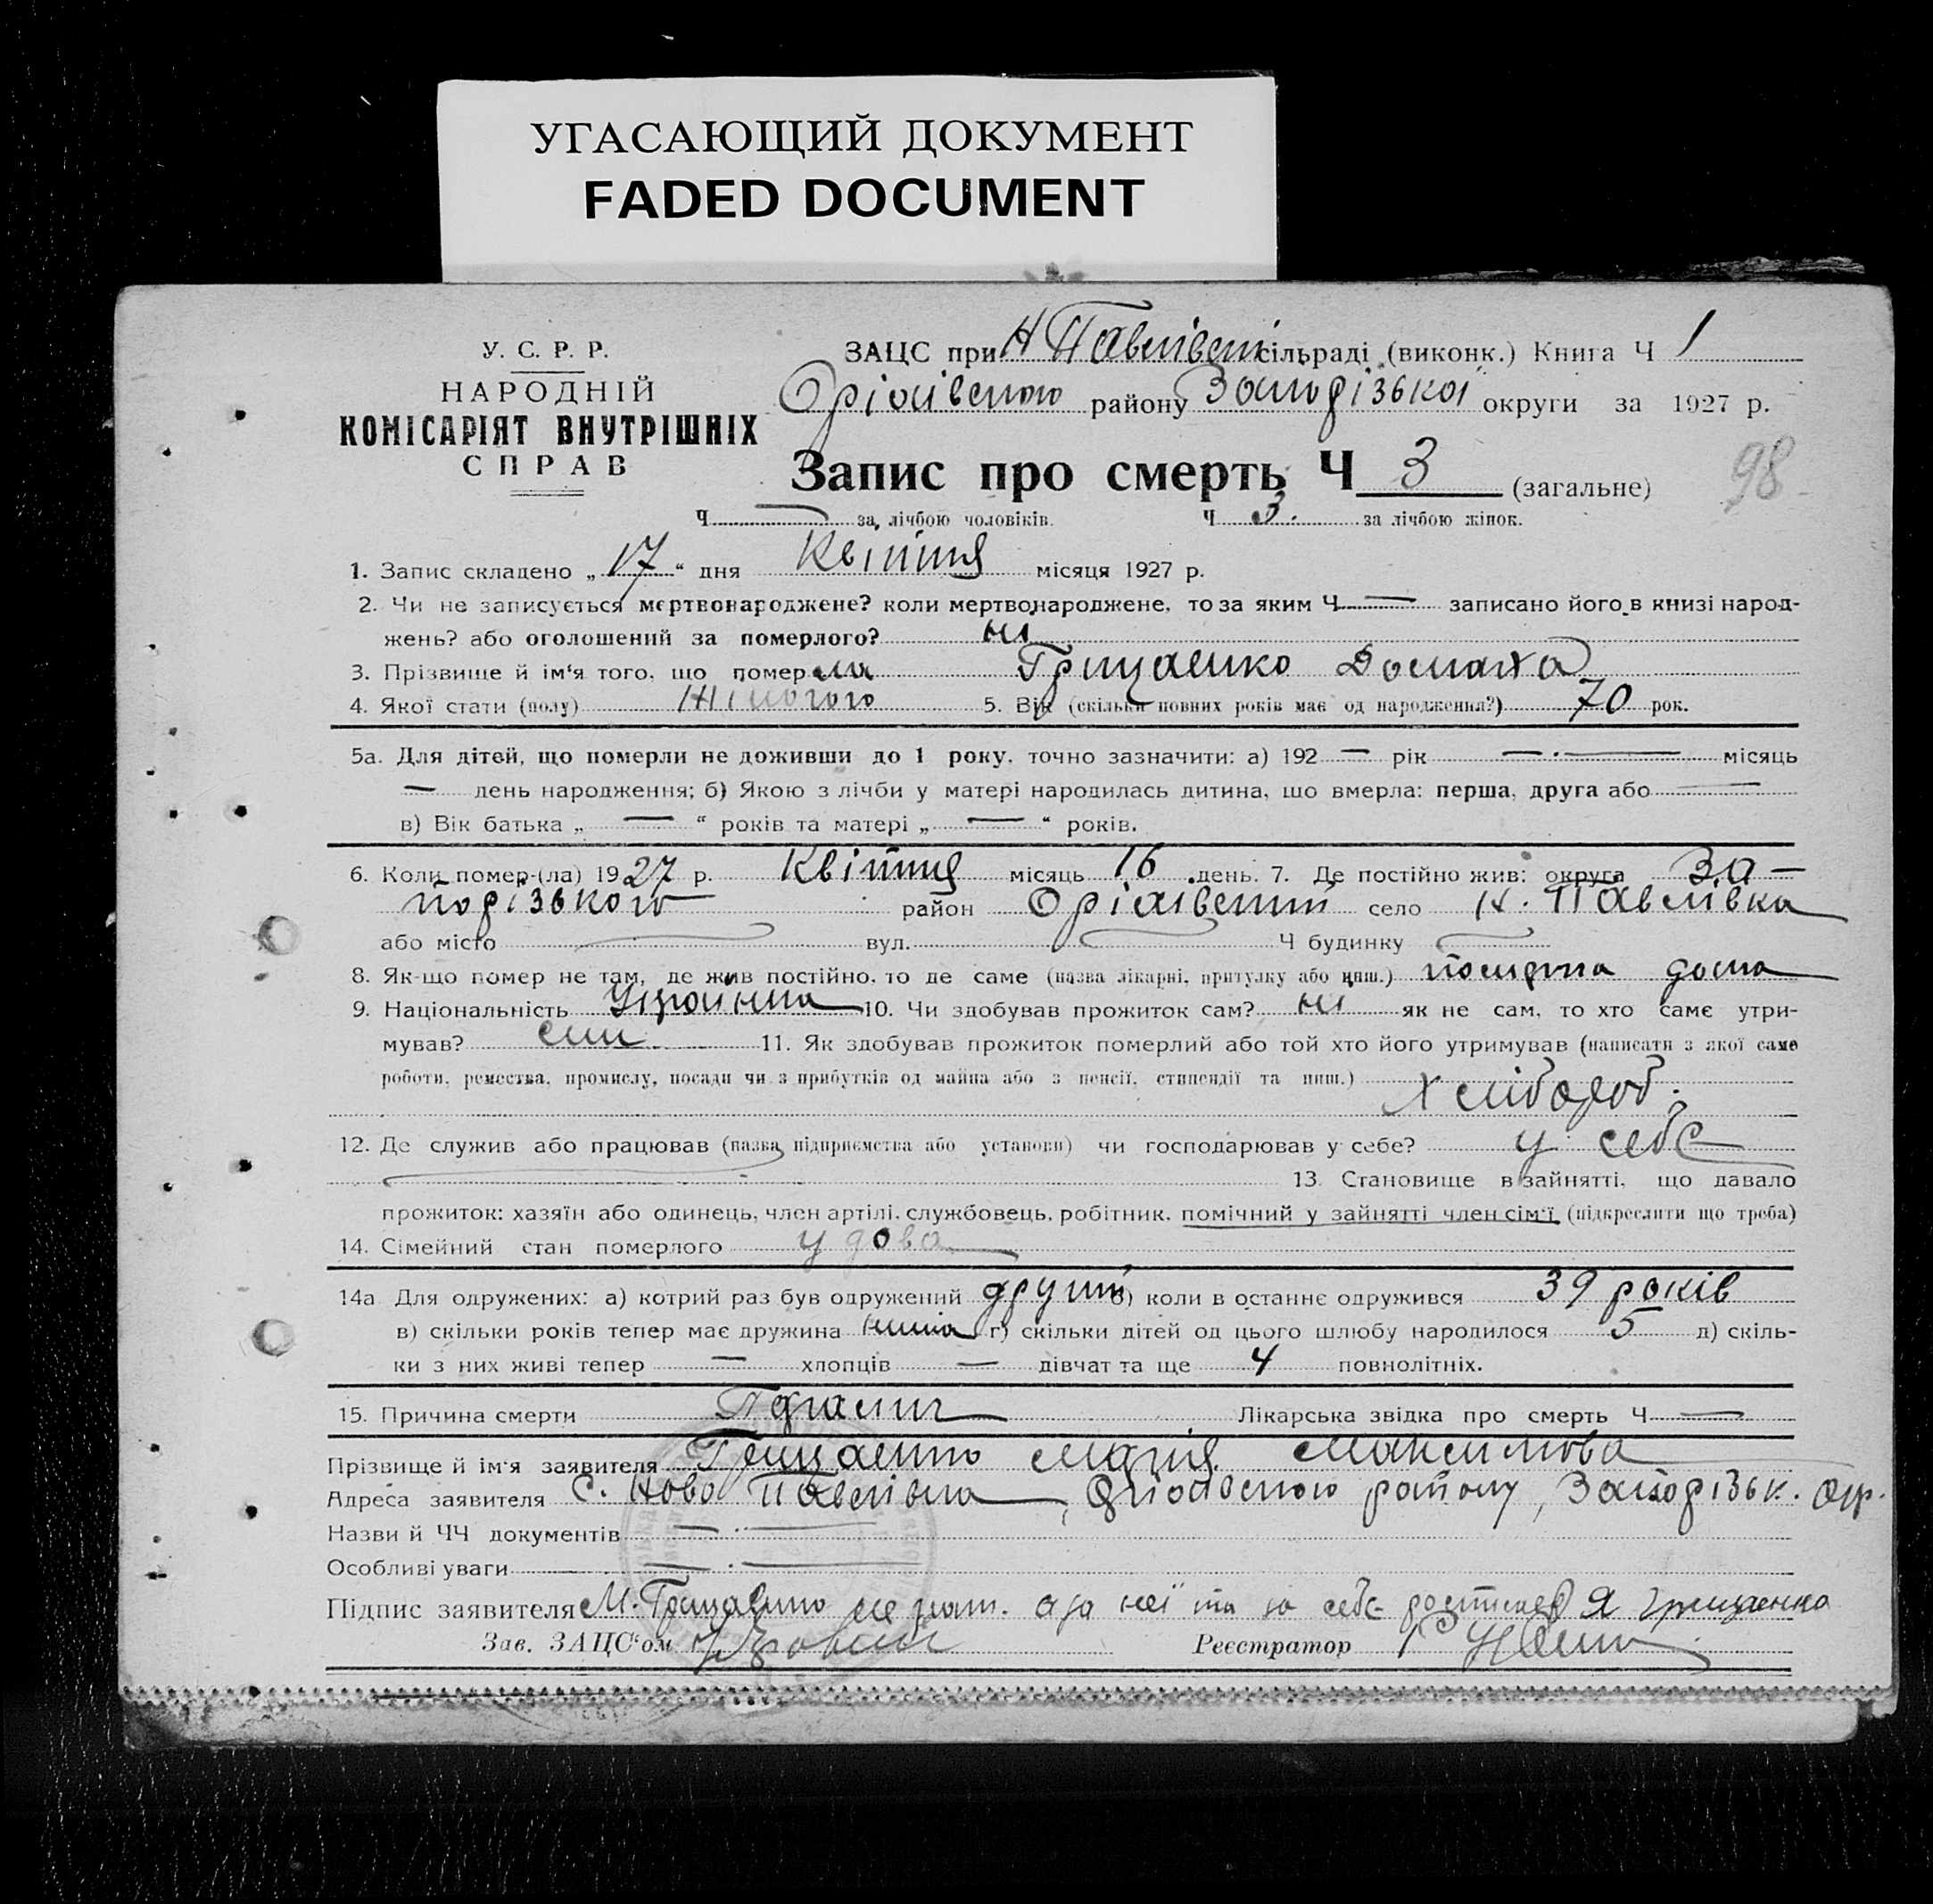 УГАСАЮЩИЙ ДОКУМЕНТ
FADED DOCUMENT
У. С. Р. Р.
НАРОДНІЙ
КОМІСАРІЯТ ВНУТРІШНІХ
СПРАВ
ЗАЦС при Н Павлівськ сільраді (виконк.) Книга Ч 1
Оріхівського району Запорізької округи за 1927 р.
Запис про смерть Ч 3 (загальне)
98
Ч — за лічбою чоловіків. Ч 3. за лічбою жінок.
1. Запис складено „17“ дня Квітня місяця 1927 р.
2. Чи не записується мертвонароджене? коли мертвонароджене, то за яким Ч — записано його в книзі народ-
жень? або оголошений за померлого? ні
3. Прізвище й ім‘я того, що помер ла Грищенко Домаха
4. Якої стати (полу) Жіночого 5. Вік (скільки повних років має од народження?) 70 рок.
5а. Для дітей, що померли не доживши до 1 року, точно зазначити: а) 192 — рік — · — місяць
— день народження; б) Якою з лічби у матері народилась дитина, що вмерла: перша, друга або —
в) Вік батька „ — “ років та матері „ — “ років.
6. Коли помер-(ла) 1927 р. Квітня місяць 16 день. 7. Де постійно жив: округа За-
порізького район Оріхівський село Н. Павлівка
або місто — вул. — Ч будинку —
8. Як-що помер не там, де жив постійно, то де саме (назва лікарні, притулку або инш.) померла дома
9. Національність Українка 10. Чи здобував прожиток сам? ні як не сам, то хто саме утри-
мував? син 11. Як здобував прожиток померлий або той хто його утримував (написати з якої саме
роботи, ремества, промислу, посади чи з прибутків од майна або з пенсії, стипендії та инш.)
Хлібороб.
12. Де служив або працював (назва підприємства або установи) чи господарював у себе? у себе
13. Становище в зайнятті, що давало
прожиток: хазяїн або одинець, член артілі, службовець, робітник, помічний у зайнятті член сім‘ї (підкреслити що треба)
14. Сімейний стан померлого удова
14а Для одружених: а) котрий раз був одружений другий б) коли в останнє одружився 39 років
в) скільки років тепер має дружина нима г) скільки дітей од цього шлюбу народилося 5 д) скіль-
ки з них живі тепер — хлопців — дівчат та ще 4 повнолітніх.
15. Причина смерти Лікарська звідка про смерть Ч —
Прізвище й ім‘я заявителя Грищенко Марія Максимова
Адреса заявителя С. Ново Павлівка, Оріхівського району, Запорізьк. Окр.
Назви й ЧЧ документів — · —
Особливі уваги — · —
Підпис заявителя М. Грищенко не грам. а за неї та за себе Я Грищенко
Зав. ЗАЦС‘ом Реєстратор